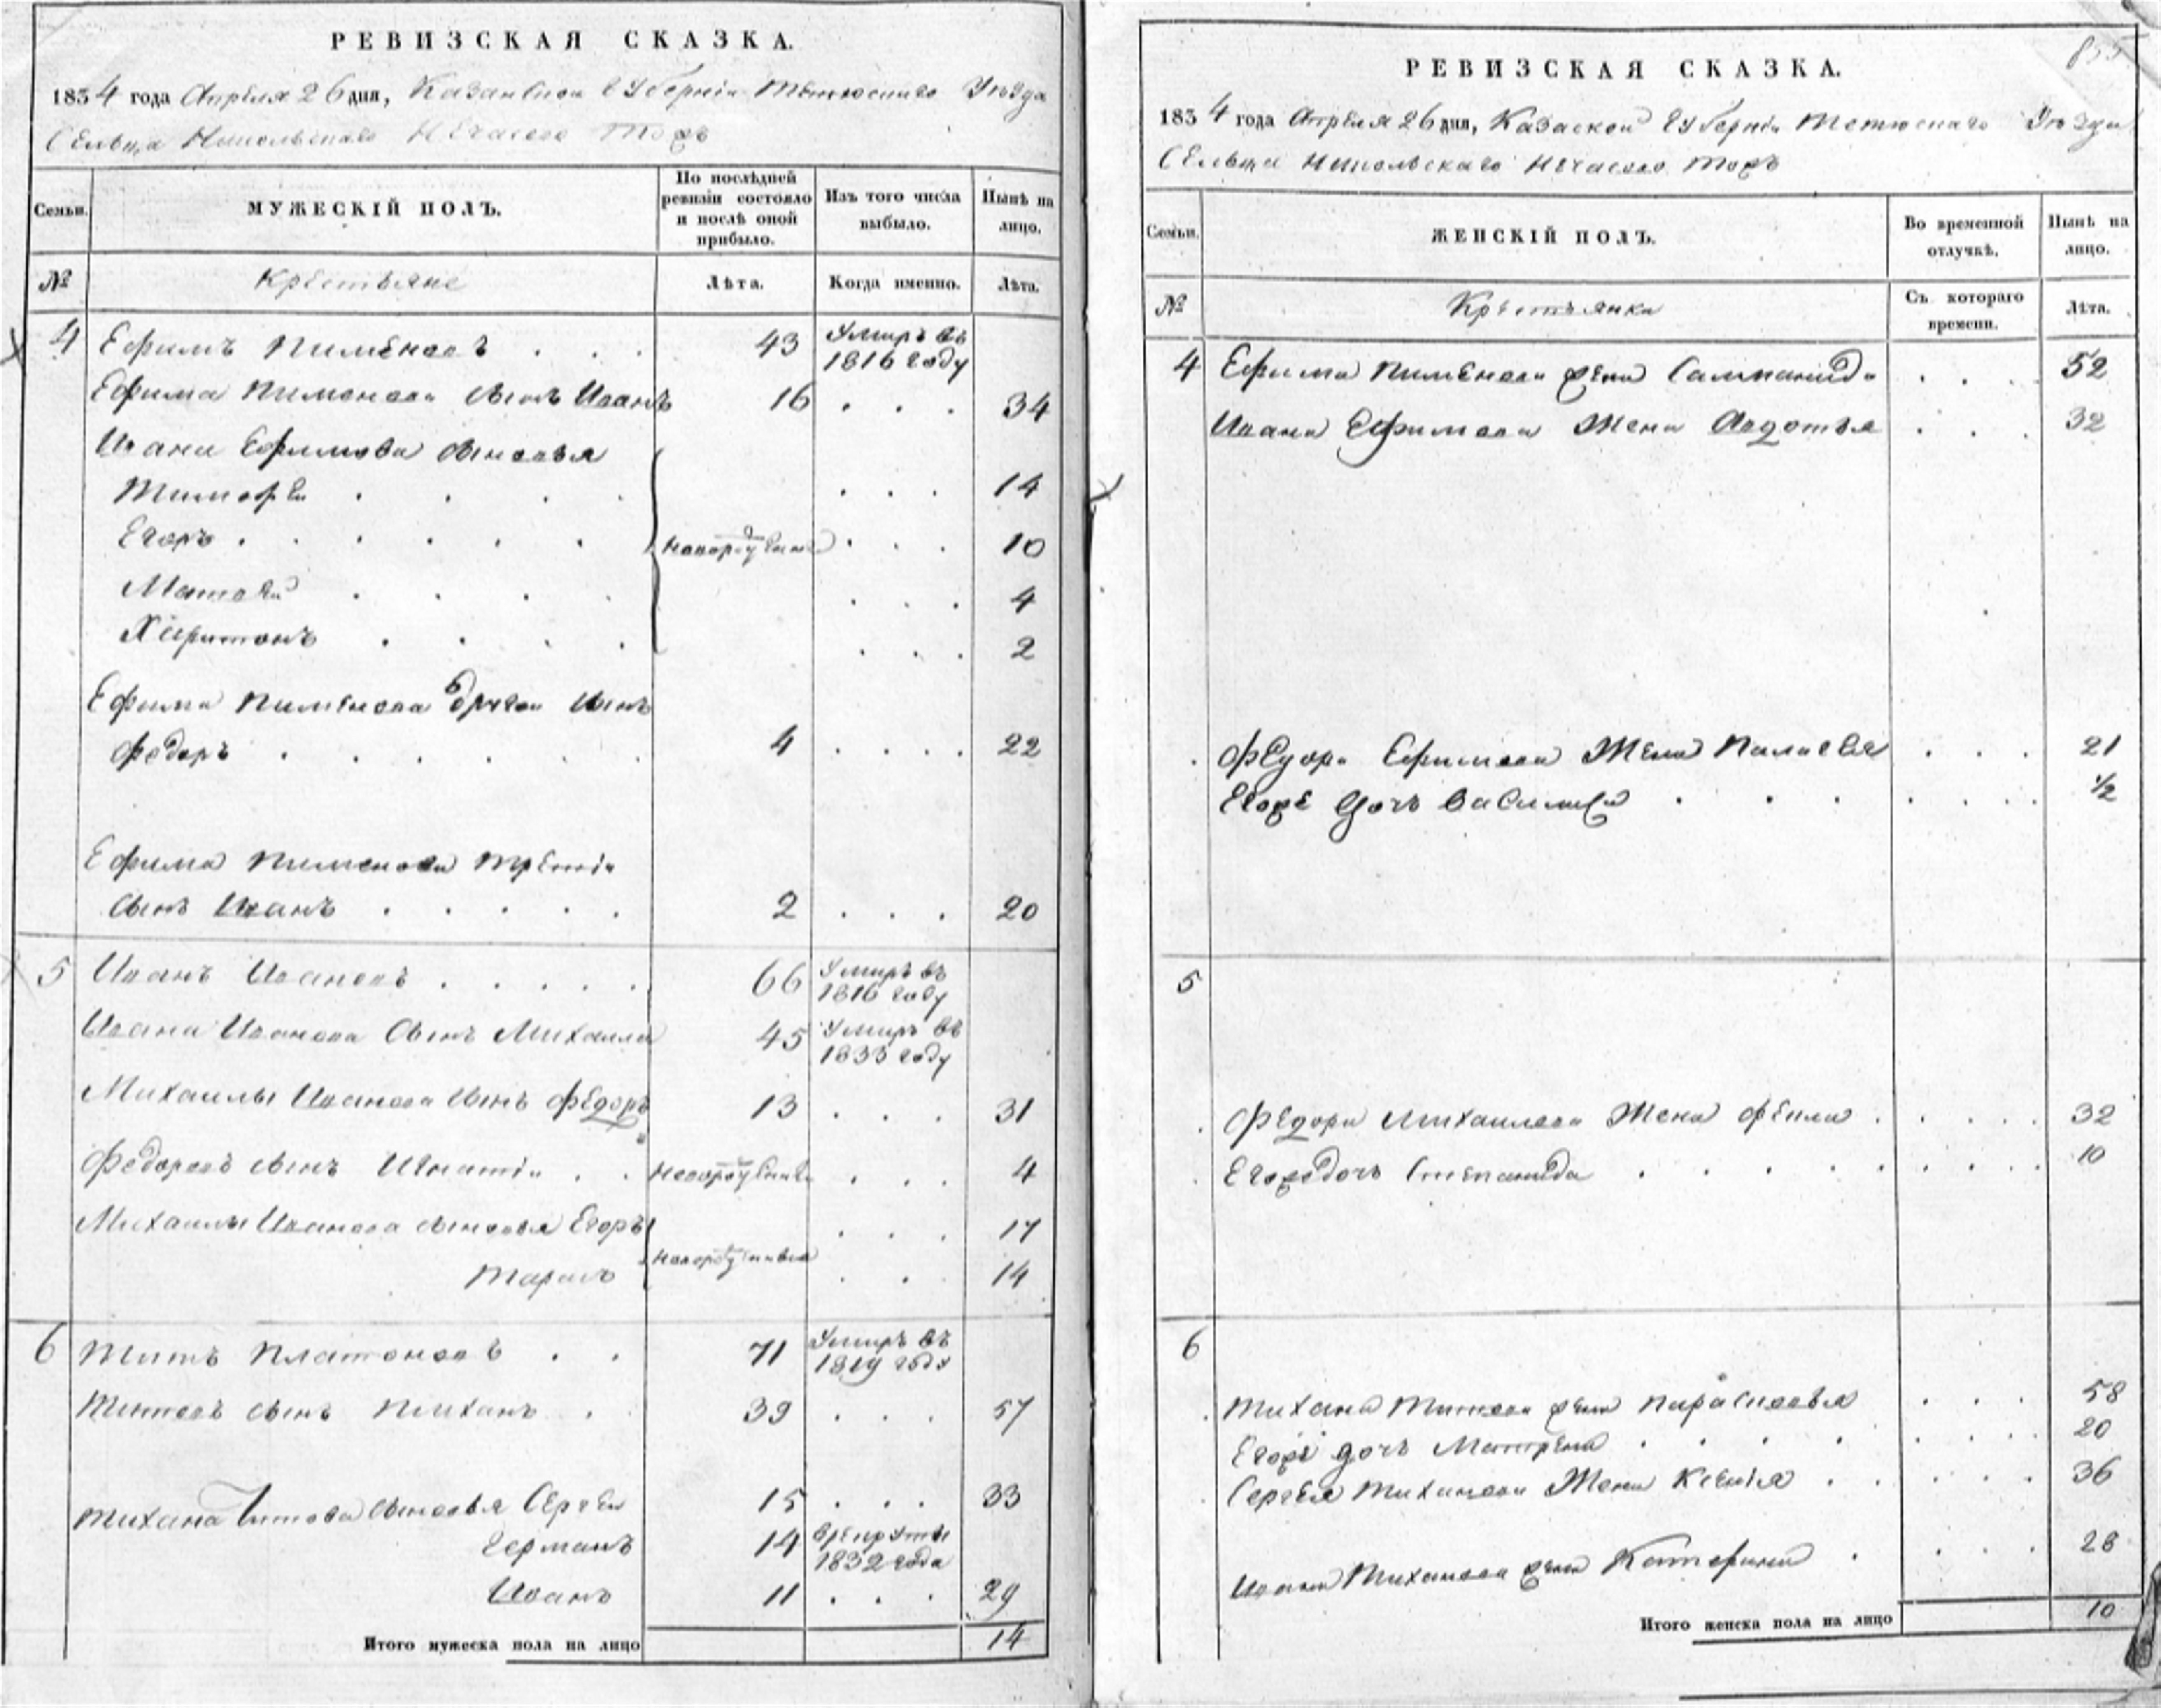 РЕВИЗСКАЯ СКАЗКА.
1834 года Апреля 26 дня, Казанской Губернiи Тетюскаго Уезда
Сельца Никольскаго Нечасово тожъ
Семьи. МУЖЕСКIЙ ПОЛЪ. По послѣдней ревизiи состояло и послѣ оной прибыло. Изъ того числа выбыло. Нынѣ на лицо.
№ Крестьяне Лѣта. Когда именно. Лѣта.
4 Ефимъ Пименовъ . . . 43 Умиръ въ 1816 году
Ефима Пименова сынъ Иванъ 16 . . . 34
Ивана Ефимова сыновья
Тимофеи . . . . . . . 14
Егоръ . . . . . новорожденны . . . 10
Матвей . . . . . . . 4
Харитонъ . . . . . . . 2
Ефима Пименова другой сынъ
Федоръ . . . . . . 4 . . . . 22
Ефима Пименова третiи
сынъ Иванъ . . . . . 2 . . . 20
5 Иванъ Ивановъ . . . . . 66 Умиръ въ 1816 году
Ивана Иванова сынъ Михаила 45 Умиръ въ 1833 году
Михаилы Иванова сынъ Федоръ 13 . . . 31
Федоровъ сынъ Игнатiи . . новорожденны . . . 4
Михаилы Иванова сыновья Егоръ . . . 17
Тарасъ новорожденныя . . 14
6 Титъ Платоновъ . . 71 Умиръ въ 1819 году
Титовъ сынъ Тиханъ . 39 . . . 57
Тихана Титова сыновья Сергеи 15 . . . 33
Германъ 14 врекруты 1832 года
Иванъ 11 . . . 29
Итого мужеска пола на лицо 14
855
РЕВИЗСКАЯ СКАЗКА.
1834 года Апреля 26 дня, Казаской Губернiи Тетюскаго Уезда
Сельца Никольскаго Нечасово тожъ
Семьи. ЖЕНСКIЙ ПОЛЪ. Во временной отлучкѣ. Нынѣ на лицо.
№ Крестьянки Съ котораго времени. Лѣта.
4 Ефима Пименова жена Саламанида . . . 52
Ивана Ефимова Жена Авдотья . . . 32
Федора Ефимова Жена Палагея . . . 21
Егоже дочь Василиса . . . . . . . 1/2
5
Федора Михаилова Жена Фекла . . . . . 32
Егоже дочь Степанида . . . . . . . . . 10
6
Тихана Титова жена Парасковья . . . 58
Егоже дочь Матрена . . . . . . . . 20
Сергея Тиханова Жена Ксенiя . . . . . 36
Ивана Тиханова жена Катерина . . . . 28
Итого женска пола на лицо 10